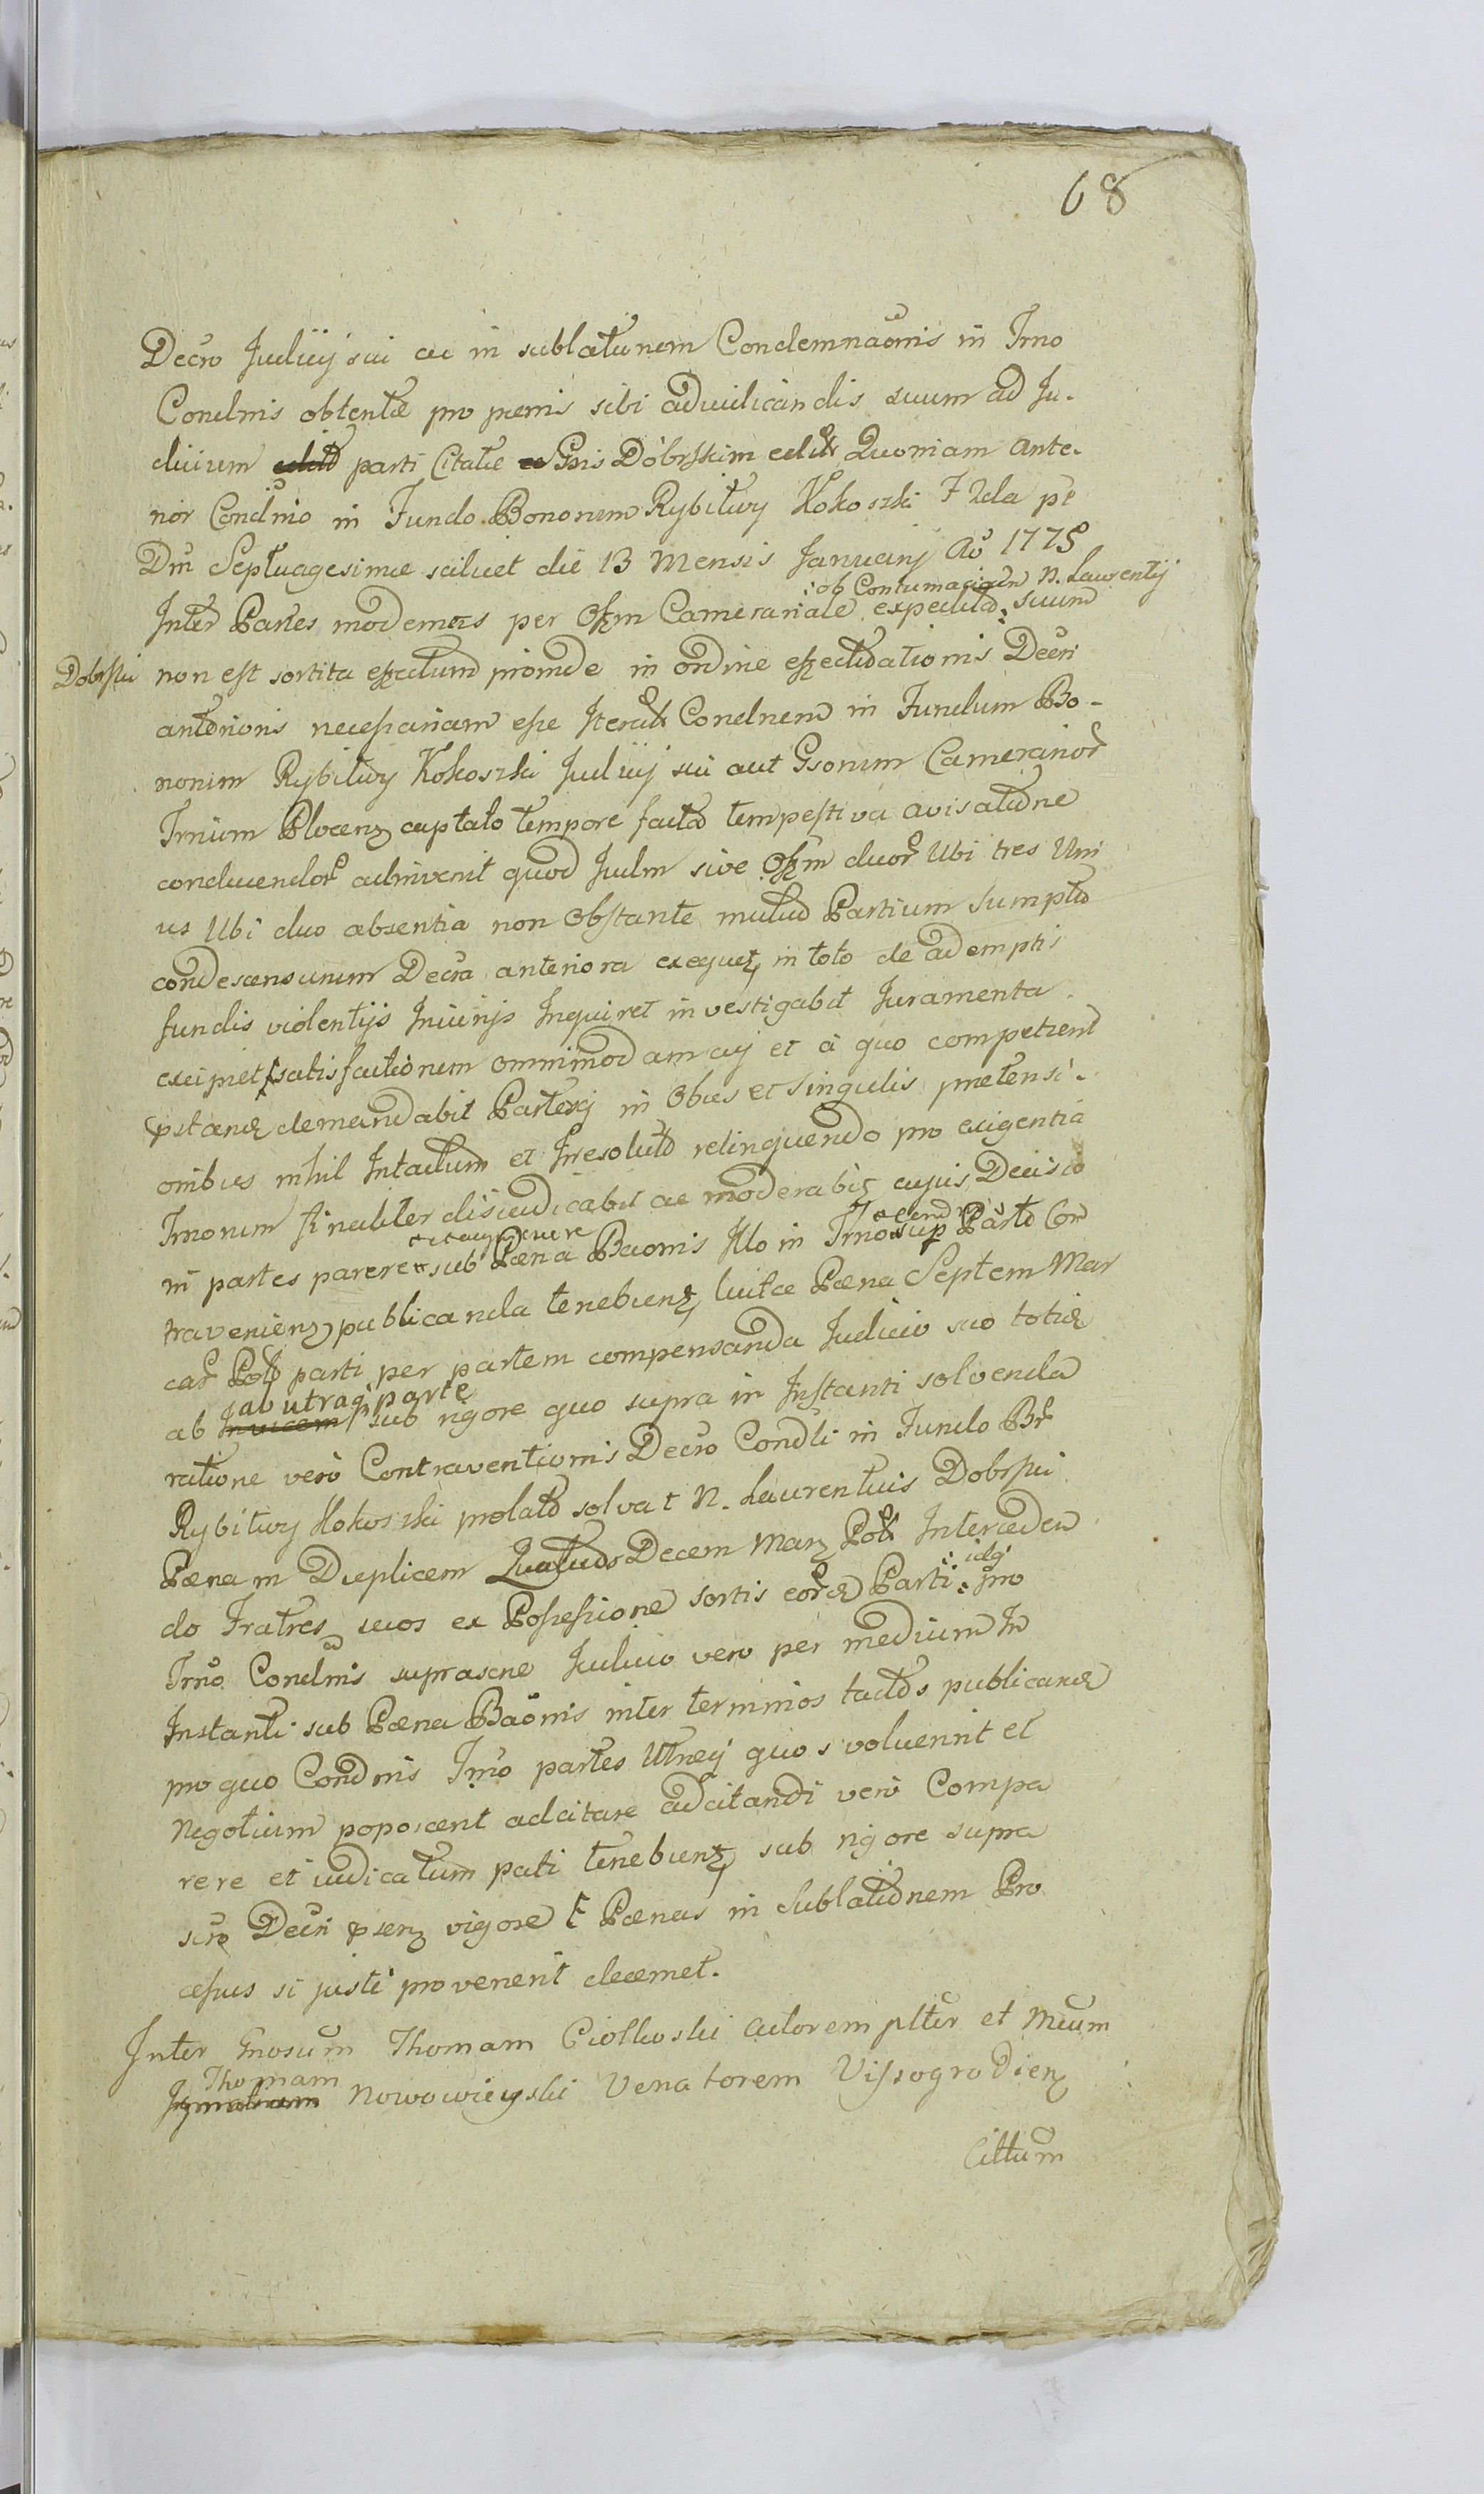 68
Decro Judicij sui ac in sublationem Condemnaonis in Trno
Condnis obtentæ pro pænis sibi adiudicandis suum ad Ju-
dicium parti Citatæ Gsis Dobrskim Quoniam Ante-
rior Condnio in Fundo Bonorum Rybitwy Kokoszki F 2da pt
Dm Septuagesimæ scilicet die 13 Mensis Januarij Ao 1775
:ob Contumaciam N. Laurentij
Inter Partes modernas per Offm Camerariale expedita: suum
Dobrski non est sortita effectum proinde in ordine effectuationis Decri
anterioris necessariam esse Condnem in Fundum Bo-
norum Rybitwy Kokoszki Judicij sui aut Gsorum Camerarior
Trrium Plocenz captato tempore facta tempestiva avisatione
conducendor adinvenit quod Judm sive Offm duor Ubi tres Uni
us Ubi duo absentia non Obstante mutuo Partium Sumptu
condescensurum Decra anteriora exequetz in toto de ademptis
fundis violentijs Iniurijs Inquiret investigabit Juramenta
excipiet satisfactionem omnimodam cuj et à quo competient
demandabit Partesq in Obus et Singulis prætensi-
onibus nihil Intactum et Irresolutum relinquendo pro exigentia
Trnorum finaliter disiudicabit ac moderabit cujus Decisio
ni partes parere sub Pæna Baonis Illo in Trno sup Parte Con
traveniens publicanda tenebuntz luitæ Pæna Septem Mar
car Pol parti per partem compensanda Judicio suo toties
ab utraq parte
ab Invicem sub rigore quo supra in Instanti solvenda
ratione verò Contraventionis Decro Condli in Fundo Br
Rybitwy Kokoszki prolato solvat N. Laurentius Dobrski
Pænam Duplicem Decem Marz Pol Interceden
do Fratres suos ex Possessione sortis Parti: idq: pro
Trno Condnis suprascne Judicio vero per medium In
Instanti sub Pæna Baonis inter terminos tactos publicand
pro quo Condnis Trno partes Utræq quos voluerint et
Negotium poposcerit adcitare adcitandi verò Compa
rere et iudicatum pati tenebuntz sub rigore supra
scro Decri psenz vigore Et Pænas in Sublationem Pro
cessus si justè provenerit decernet.
Inter Gnosum Thomam Ciolkoski Actorem pltur et Mcum
Thomam
Ignatium Nowowieyski Venatorem Vissogrodienz
Cittum